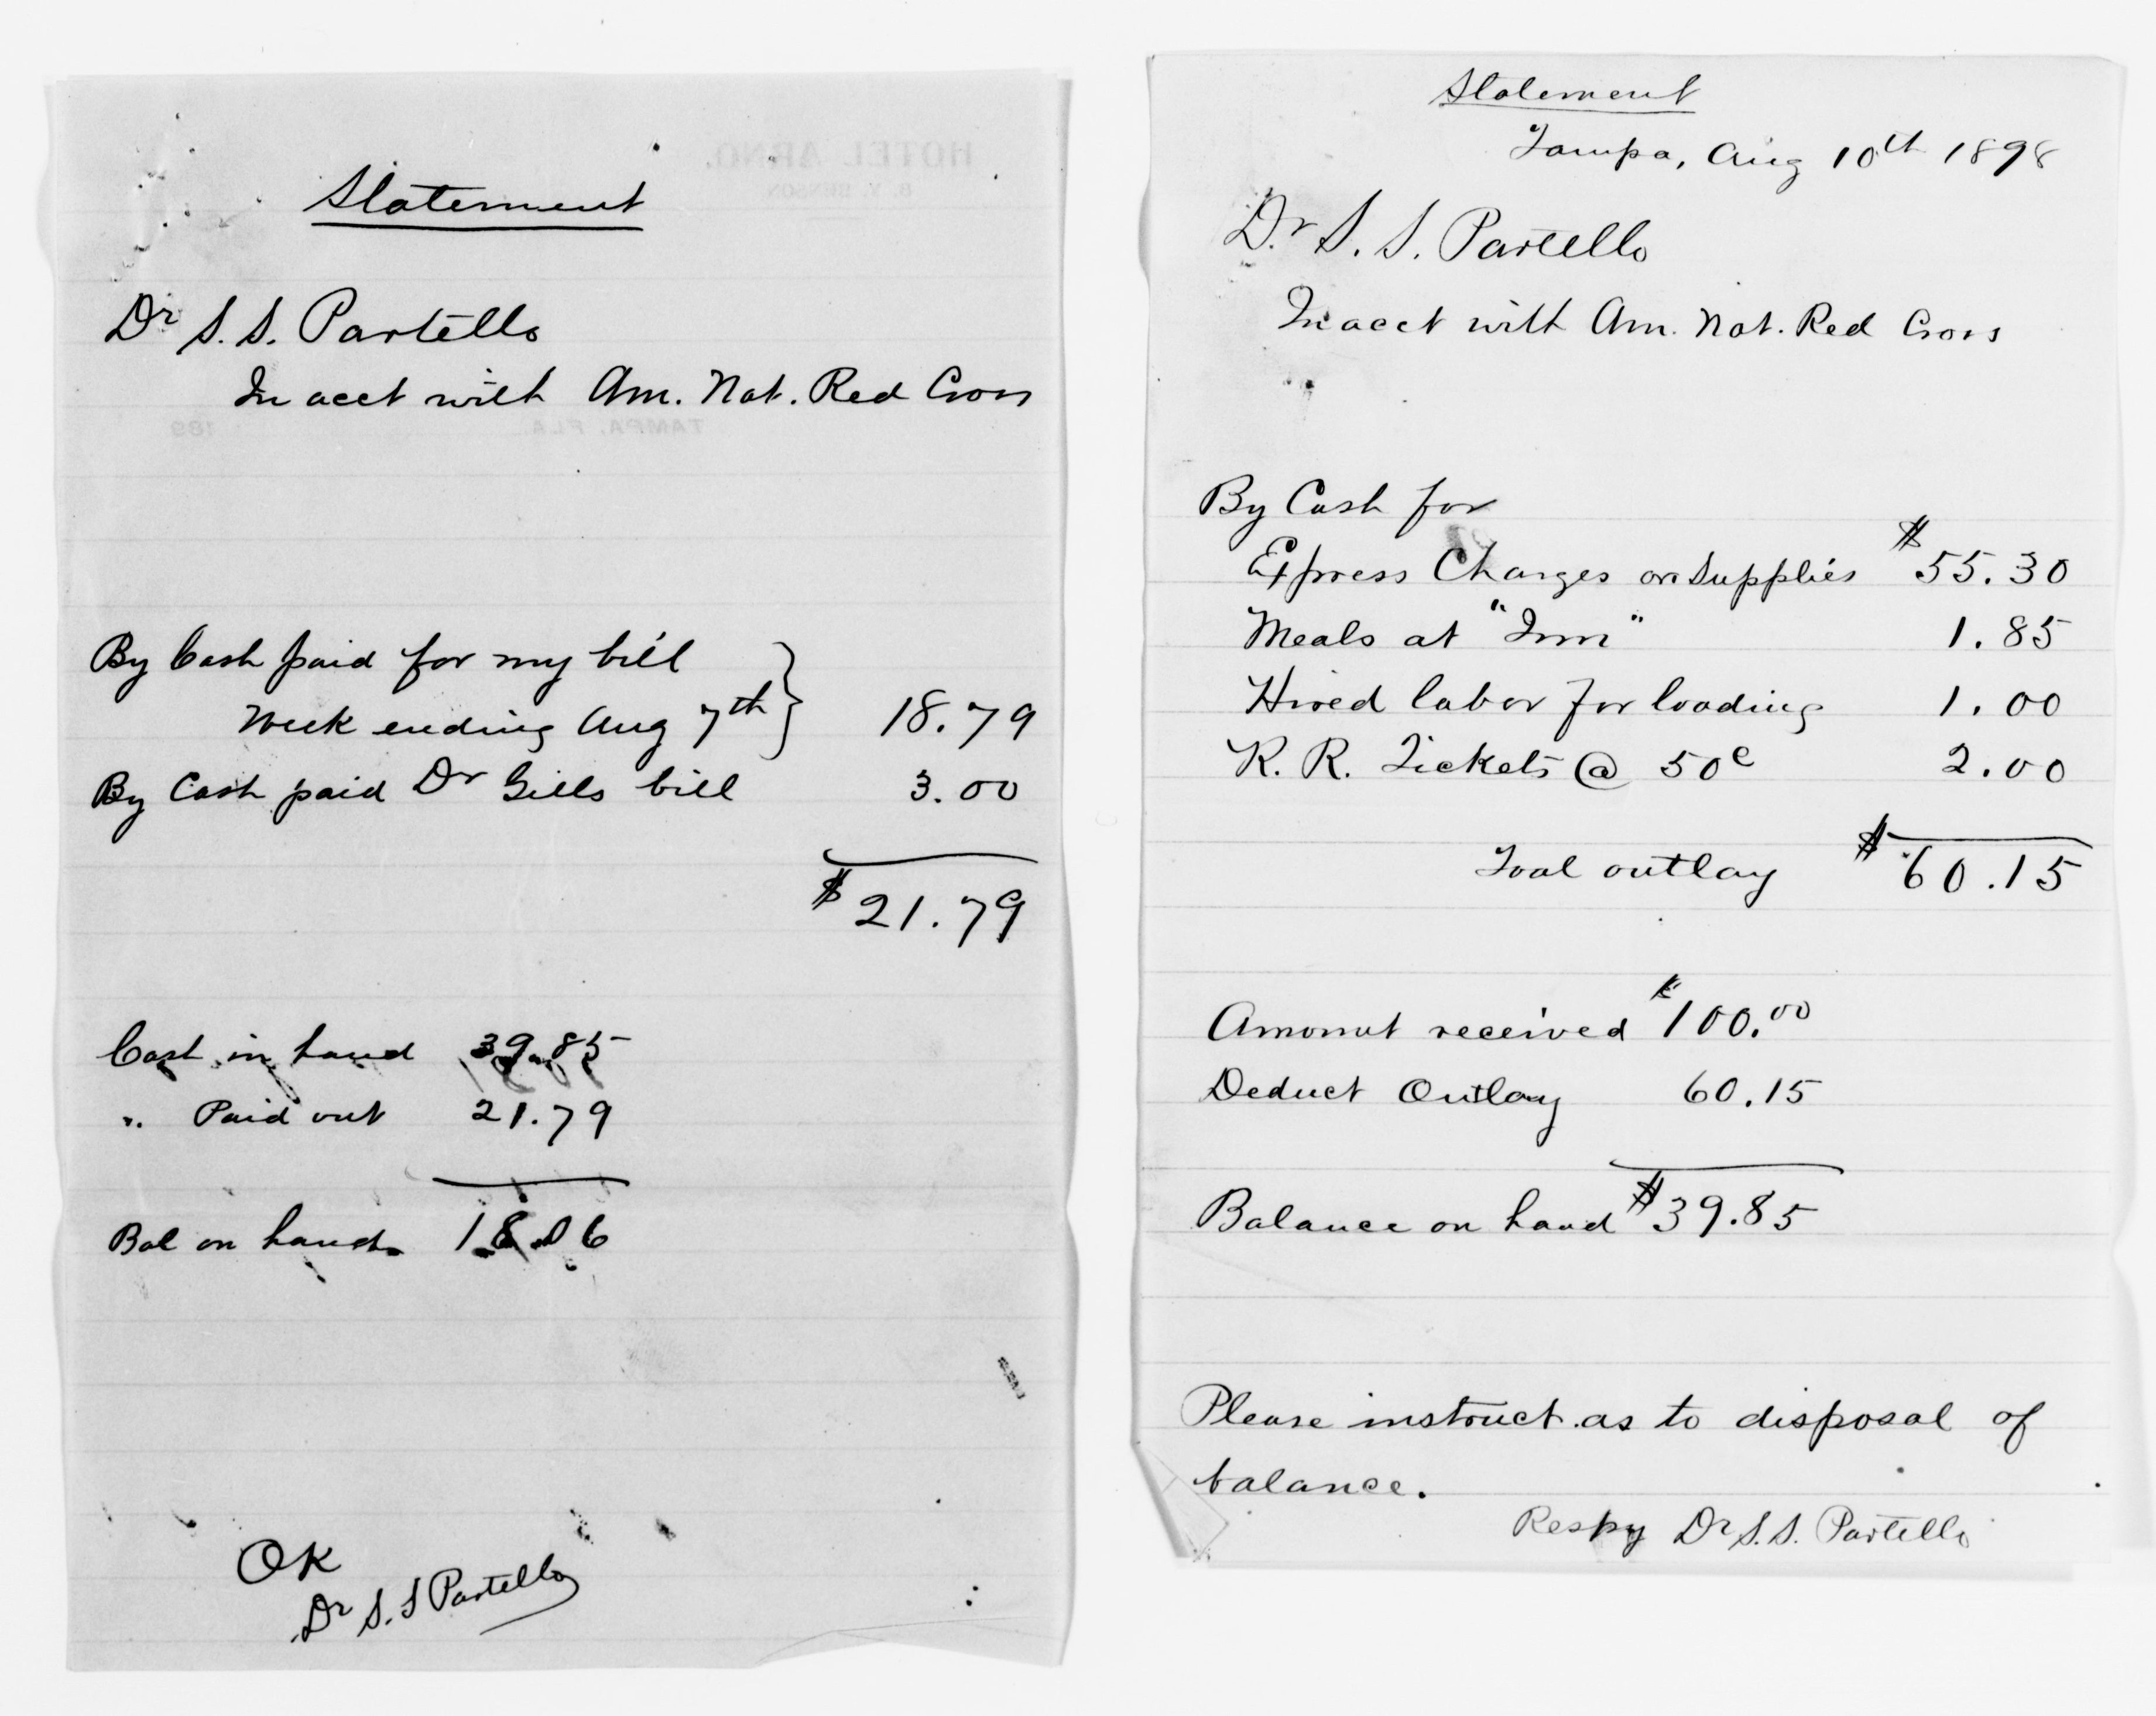 Statement
Dr S. S. Partello
In acct with Am. Nat. Red Cross
By Cash paid for my bill
Week ending Aug 7th } 18.79
By Cash paid Dr Gills bill 3.00
$ 21.79
Cash in hand 39.85
" Paid out 21.79
Bal on hand 18.06
OK
Dr S. S Partello
HOTEL ARNO.
TAMPA, FLA. 189
Statement
Tampa, Aug 10th 1898
Dr. S. S. Partello
In acct with Am. Nat. Red Cross
By Cash for
Express Charges on Supplies $55.30
Meals at "Inn" 1.85
Hired labor for loading 1.00
R. R. Tickets @ 50c 2.00
Toal outlay $ 60.15
Amount received $100.00
Deduct Outlay 60.15
Balance on hand $39.85
Please instruct as to disposal of
balance.
Respy Dr S. S. Partello